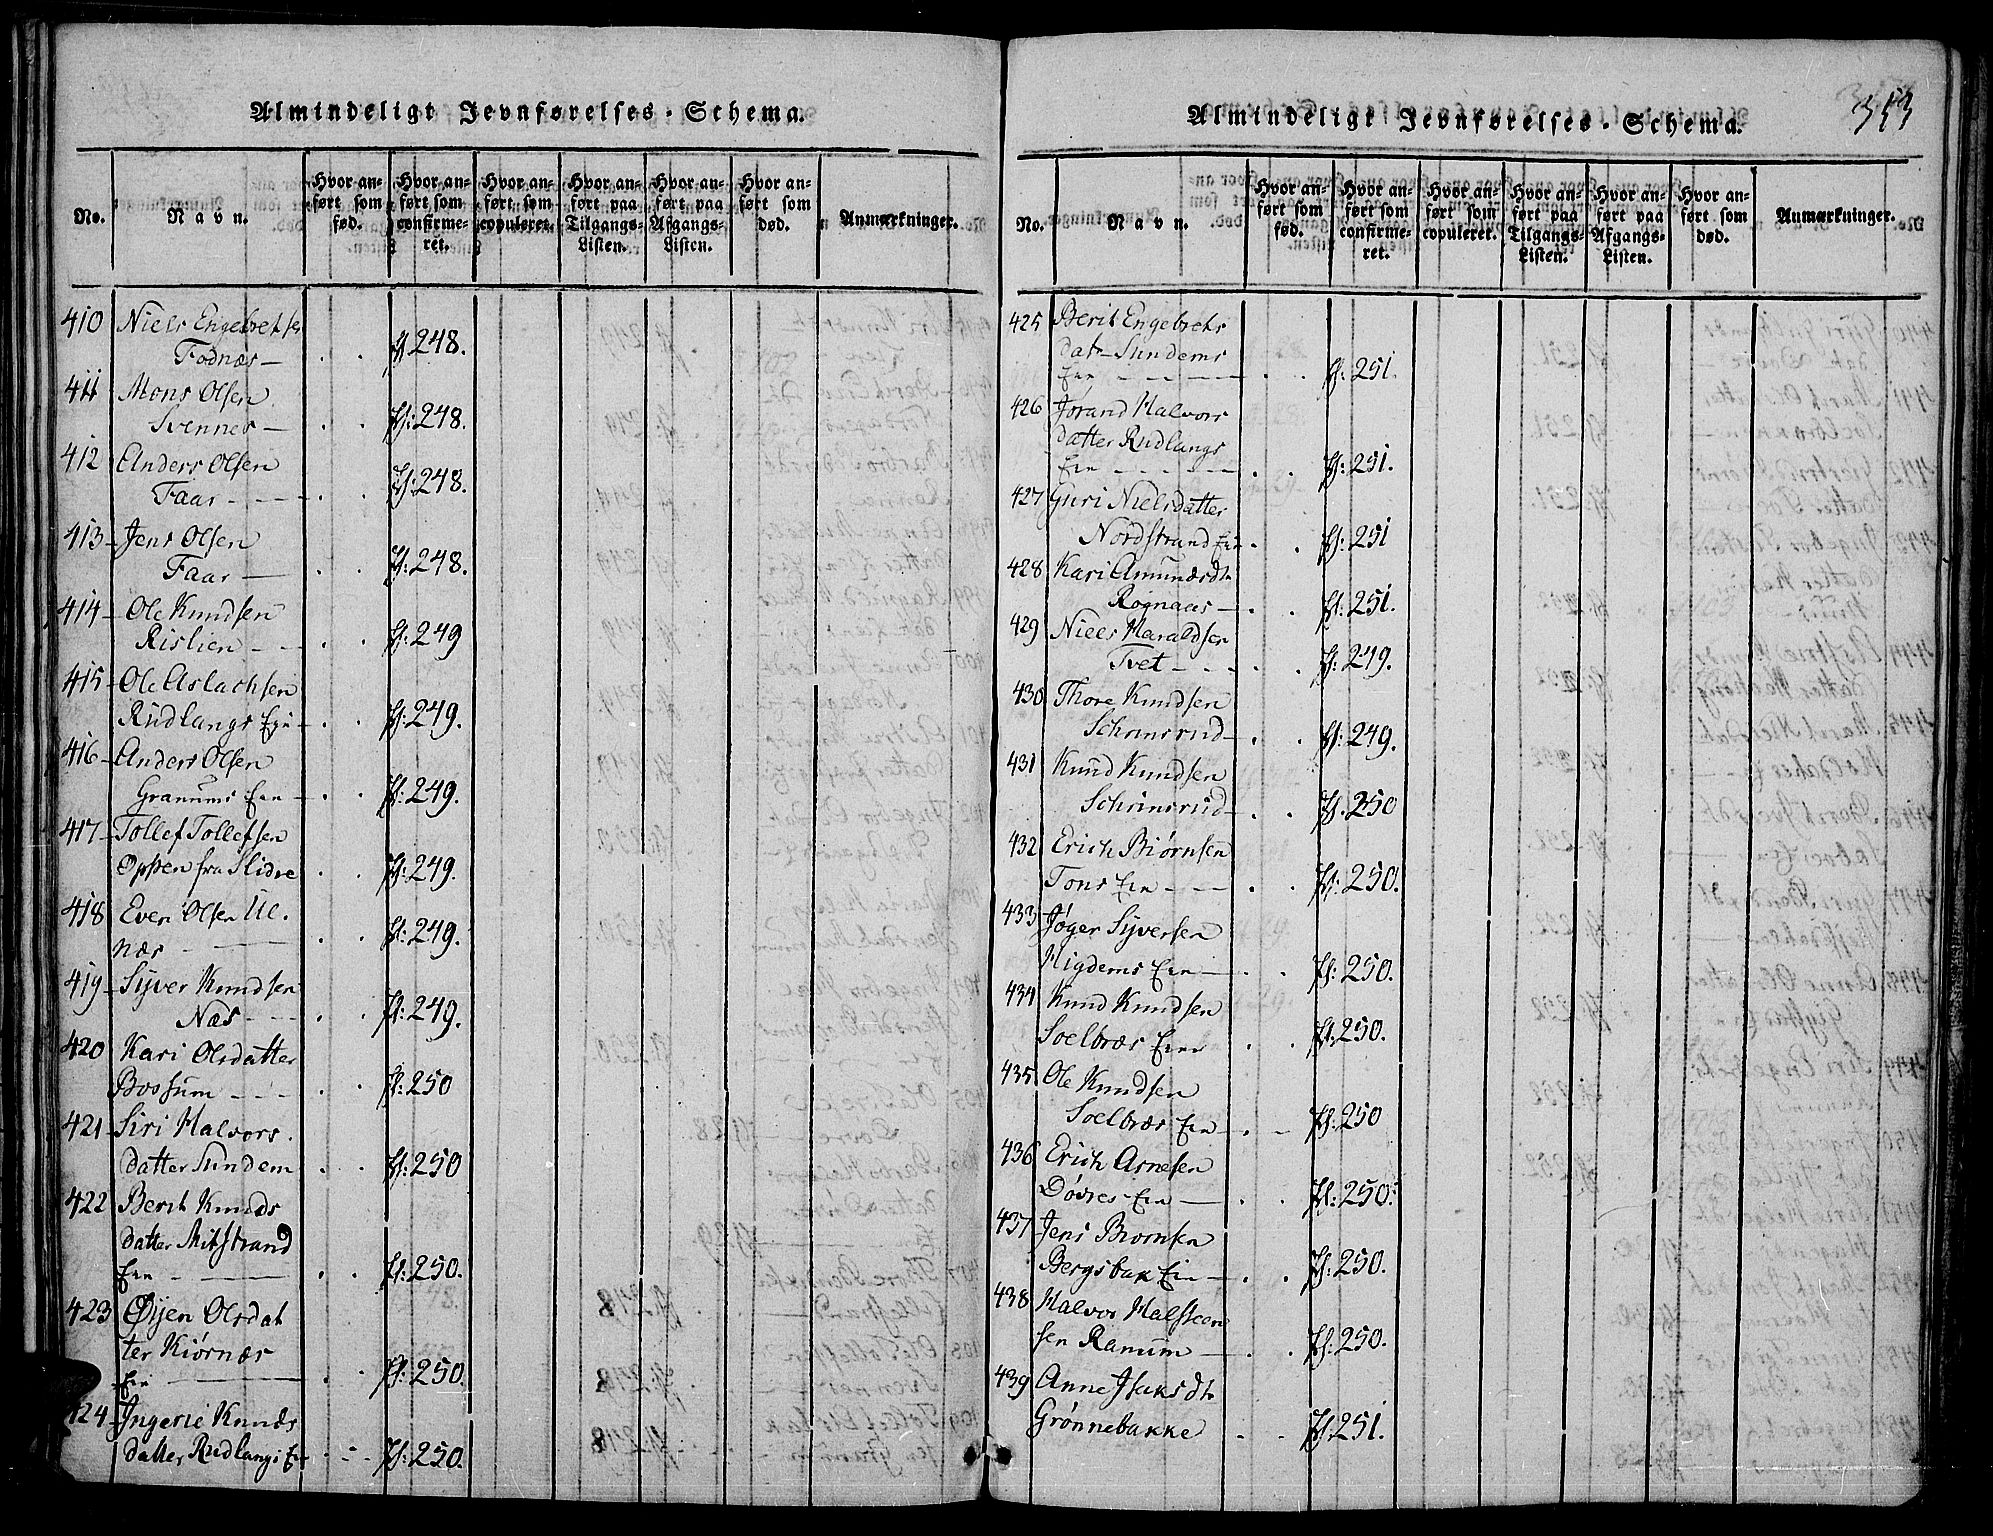 Almindeligt Jevnførelses-Schema.
No. Navn. Hvor anført som fød. Hvor anført som confirmeret. Hvor anført som copuleret. Hvor anført paa Tilgangs-Listen. Hvor anført paa Afgangs-Listen. Hvor anført som død. Anmærkninger.
410 Niels Engebretsen
Fodnæs — fl 248.
411 Mons Olsen
Svennes — fl: 248.
412 Anders Olsen
Faar - - - fl: 248.
413 Jens Olsen
Faar — fl: 248.
414 Ole Knudsen
Rislien - - fl: 249
415 Ole Aslachsen
Rudlangs Eie - fl: 249.
416 Anders Olsen
Granums Eie - fl: 249.
417 Tollef Tollefsen
Oppen fra Slidre fl: 249.
418 Even Olsen Ul-
næs - — fl: 249.
419 Syver Knudsen
Næs - - - fl: 249.
420 Kari Olsdatter
Bossum - - - fl: 250
421 Siri Halvors
datter Sundem fl: 250
422 Berit Knuds
datter Mitstrand
Eie - — fl: 250.
423 Øyen Olsdat
ter Kiørnæs
Eie — fl: 250.
424 Ingerie Knuds
datter Rudlangs Eie fl: 250.
Almindeligt Jevnførelses-Schema. 353
No. Navn. Hvor anført som fød. Hvor anført som confirmeret. Hvor anført som copuleret. Hvor anført paa Tilgangs-Listen. Hvor anført paa Afgangs-Listen. Hvor anført som død. Anmærkninger.
425 Berit Engebrets
dat- Sundems
Eie - - - fl: 251.
426 Jørand Halvors
datter Rudlangs
Eie - - - fl: 251.
427 Guri Nielsdatter
Nordstrand Eie fl: 251
428 Kari Amundsdtr
Rognaas - fl: 251.
429 Niels Haraldsen
Tvet - - - fl: 249.
430 Thore Knudsen
Schrinsrud - fl: 249.
431 Knud Knudsen
Schrinsrud - fl. 250
432 Erich Biørnsen
Tons Eie - - - fl: 250.
433 Jøger Syversen
Migdems Eie - fl: 250.
434 Knud Knudsen
Soelbræs Eie fl: 250.
435 Ole Knudsen
Soelbræs Eie - fl: 250
436 Erich Arnesen
Døvres Eie — fl: 250.
437 Jens Biørnsen
Bergsbak Eie - fl: 250.
438 Halvor Halsteen
sen Ranum - fl: 250.
439 Anne Isaksdtr
Grønnebakke fl: 251.